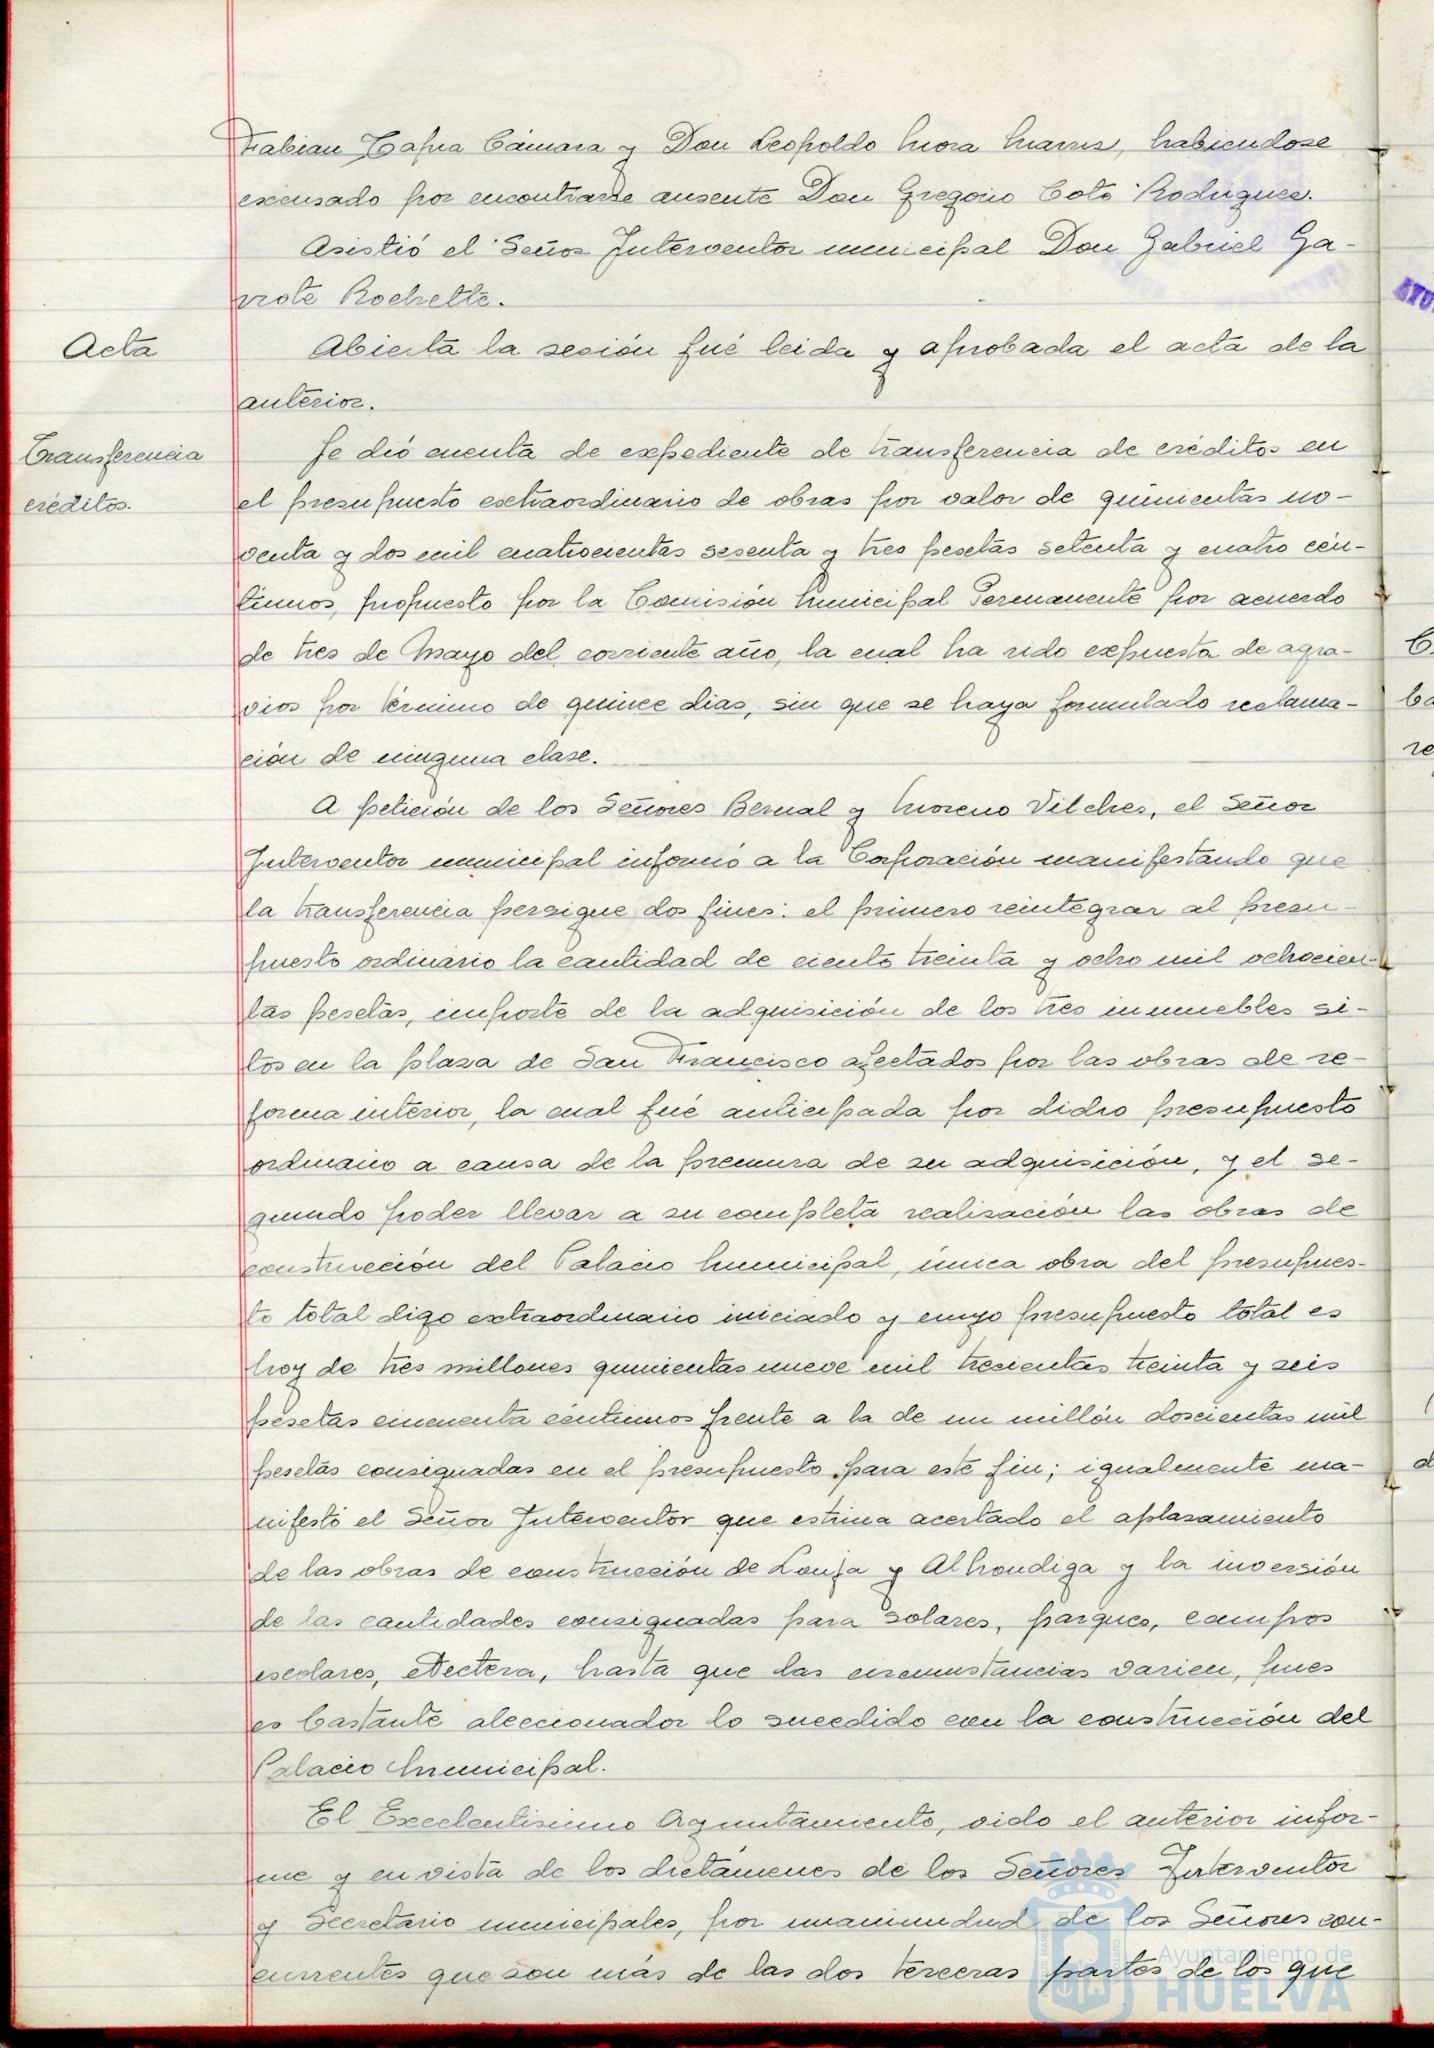 Fabian Tafira Cámara y Don Leopoldo Mora Marres, habiendose
excusado por encontrarse ausente Don Gregorio Coto Rodriguez.
Asistió el Señor Interventor municipal Don Gabriel Ga-
rrote Rochette.
Acta
Abierta la sesión fué leida y aprobada el acta de la
anterior.
Transferencia
créditos.
Se dió cuenta de expediente de transferencia de créditos en
el presupuesto extraordinario de obras por valor de quinientas no-
venta y dos mil cuatrocientas sesenta y tres pesetas setenta y cuatro cén-
timos, propuesto por la Comisión Municipal Permanente por acuerdo
de tres de Mayo del corriente año, la cual ha sido expuesta de agra-
vios por término de quince dias, sin que se haya formulado reclama-
ción de ninguna clase.
A petición de los Señores Bernal y Moreno Vilches, el Señor
Interventor municipal informó a la Corporación manifestando que
la transferencia persigue dos fines: el primero reintegrar al presu-
puesto ordinario la cantidad de ciento treinta y ocho mil ochocien-
tas pesetas, importe de la adquisición de los tres inmuebles si-
tos en la plaza de San Francisco afectados por las obras de re-
forma interior, la cual fué anticipada por dicho presupuesto
ordinario a causa de la premura de su adquisición, y el se-
gundo poder llevar a su completa realización las obras de
construcción del Palacio Municipal, única obra del presupues-
to total digo extraordinario iniciado y cuyo presupuesto total es
hoy de tres millones quinientas nueve mil trecientas treinta y seis
pesetas cincuenta céntimos frente a la de un millón doscientas mil
pesetas consignadas en el presupuesto para este fin; igualmente ma-
nifestó el Señor Interventor que estima acertado el aplazamiento
de las obras de construcción de Lonja y Alhondiga y la inversión
de las cantidades consignadas para solares, parques, campos
escolares, etectera, hasta que las circunstancias varien, pues
es bastante aleccionador lo sucedido con la construcción del
Palacio Municipal.
El Excelentisimo Ayuntamiento, oido el anterior infor-
me y en vista de los dictámenes de los Señores Interventor
y Secretario municipales, por unanimidad de los Señores con-
currentes que son más de las dos terceras partes de los que
Ayuntamiento de
HUELVA